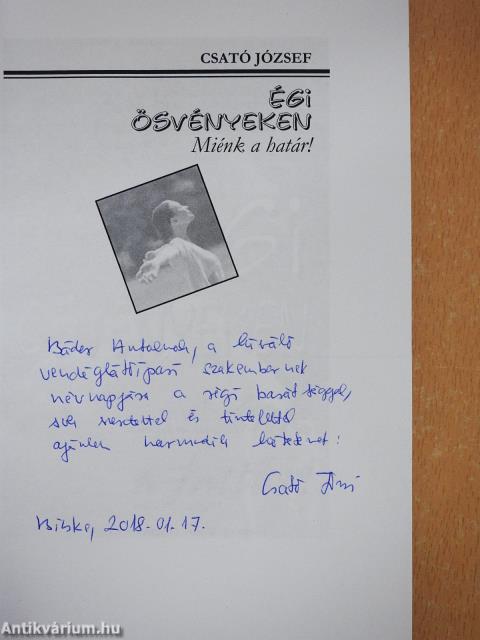 CSATÓ JÓZSEF
ÉGI
ÖSVÉNYEKEN
Miénk a határ!
Báder Antalnak, a kiváló
vendéglátóipari szakembernek
névnapjára a régi barátsággal,
sok szeretettel és tisztelettel
ajánlom harmadik kötetemet:
Csató Józsi
Bicske, 2018.01.17.
Antikvárium.hu